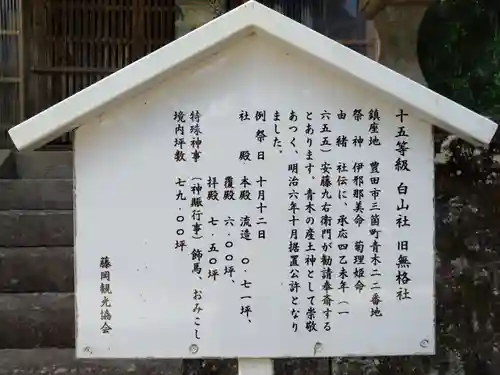 十五等級 白山社 旧無格社
鎮座地 豊田市三箇町青木二二番地
祭神 伊邪那美命 菊理姫命
由緒 社伝に、承応四乙未年(一
六五五)安藤九右衛門が勧請奉斎する
とあります。青木の産土神として崇敬
あつく、明治六年十月据置公許となり
ました。
例祭日 十月十二日
社殿 本殿 流造 〇.七一坪、
覆殿 六.〇〇坪、
拝殿 七.五〇坪
特殊神事 (神賑行事)飾馬、おみこし
境内坪数 七九.〇〇坪
藤岡観光協会